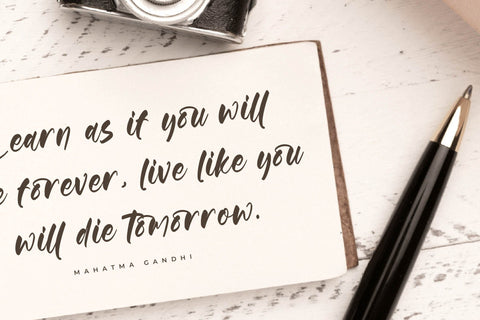 Learn as if you will
forever, live like you
will die tomorrow.
MAHATMA GANDHI